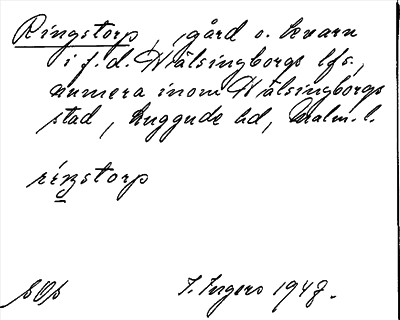 Ringstorp, gård o. kvarn
i f. d. Hälsingborgs lfs.,
numera inom Hälsingborgs
stad, Luggude hd, Malm. l.
ríŋstorp
sOp I. Ingers 1947.